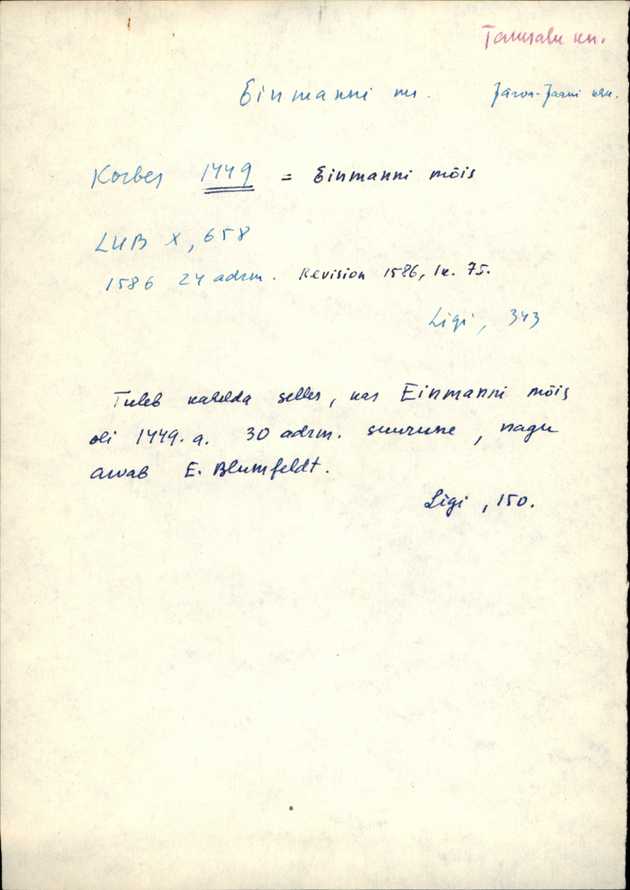 Tamsalu kn.
Einmanni m. Järva-Jaani khk.
Korbes 1449 = Einmanni mõis
LUB X, 658
1586 24 adrm. Revision 1586, lk. 75.
Ligi, 343
Tuleb kahelda selles, kas Einmanni mõis
oli 1449. a. 30 adrm. suurune, nagu
arvab E. Blumfeldt.
Ligi, 150.